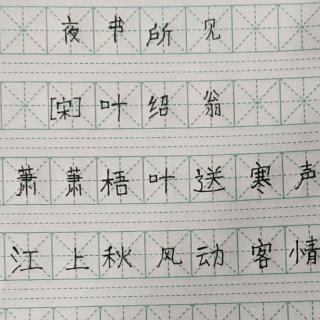 夜书所见
[宋]叶绍翁
萧萧梧叶送寒声
江上秋风动客情